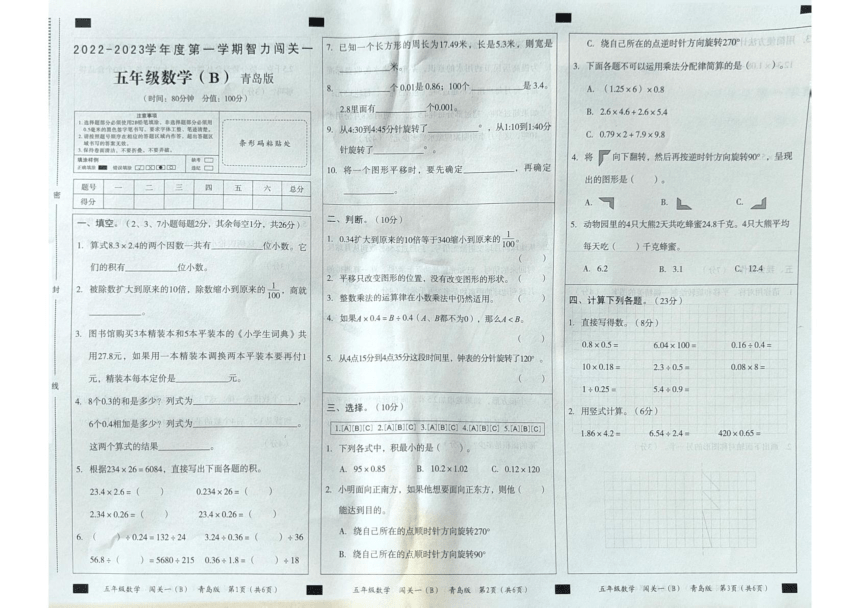 2022-2023学年度第一学期智力闯关一
五年级数学（B） 青岛版
（时间：80分钟 分值：100分）
注意事项
条形码粘贴处
填涂样例
正确填涂
错误填涂
缺考
违纪
题号 一 二 三 四 五 六 总分
得分
密
封
线
一、填空。（2、3、7小题每题2分，其余每空1分，共26分）
1. 算式8.3×2.4的两个因数一共有________位小数。它
们的积有________位小数。
2. 被除数扩大到原来的10倍，除数缩小到原来的1/100，商就
________。
3. 图书馆购买3本精装本和5本平装本的《小学生词典》共
用27.8元，如果用一本精装本调换两本平装本要再付1
元，精装本每本定价是________元。
4. 8个0.3的和是多少？列式为________，
6个0.4相加是多少？列式为________。
这两个算式的结果________。
5. 根据234×26=6084，直接写出下面各题的积。
23.4×2.6=（ ） 0.234×26=（ ）
2.34×0.26=（ ） 23.4×0.26=（ ）
6. （ ）÷0.24=132÷24 3.24÷0.36=（ ）÷36
56.8÷（ ）=5680÷215 0.36÷1.8=（ ）÷18
五年级数学 闯关一（B） 青岛版 第1页（共6页）
7. 已知一个长方形的周长为17.49米，长是5.3米，则宽是
________米。
8. ________个0.01是0.86；100个________是3.4。
2.8里面有________个0.001。
9. 从4:30到4:45分针旋转了________°，从1:10到1:40分
针旋转了________°。
10. 将一个图形平移时，要先确定________，再确定
________。
二、判断。（10分）
1. 0.34扩大到原来的10倍等于340缩小到原来的1/100。
（ ）
2. 平移只改变图形的位置，没有改变图形的形状。（ ）
3. 整数乘法的运算律在小数乘法中仍然适用。（ ）
4. 如果A×0.4=B÷0.4（A、B都不为0），那么A<B。
（ ）
5. 从4点15分到4点35分这段时间里，钟表的分针旋转了120°。
（ ）
三、选择。（10分）
1.[A][B][C] 2.[A][B][C] 3.[A][B][C] 4.[A][B][C] 5.[A][B][C]
1. 下列各式中，积最小的是（ ）。
A. 95×0.85 B. 10.2×1.02 C. 0.12×120
2. 小明面向正南方，如果他想要面向正东方，则他（ ）
能达到目的。
A. 绕自己所在的点顺时针方向旋转270°
B. 绕自己所在的点顺时针方向旋转90°
五年级数学 闯关一（B） 青岛版 第2页（共6页）
C. 绕自己所在的点逆时针方向旋转270°
3. 下面各题不可以运用乘法分配律简算的是（ ）。
A. （1.25×6）×0.8
B. 2.6×4.6+2.6×5.4
C. 0.79×2+7.9×9.8
4. 将 向下翻转，然后再按逆时针方向旋转90°，呈现
出的图形是（ ）。
A. B. C.
5. 动物园里的4只大熊2天共吃蜂蜜24.8千克。4只大熊平均
每天吃（ ）千克蜂蜜。
A. 6.2 B. 3.1 C. 12.4
四、计算下列各题。（23分）
1. 直接写得数。（8分）
0.8×0.5= 6.04×100= 0.16÷0.4=
10×0.18= 2.3÷0.5= 0.08×8=
1÷0.25= 5.4÷0.9=
2. 用竖式计算。（6分）
1.86×4.2= 6.54÷2.4= 420×0.65=
五年级数学 闯关一（B） 青岛版 第3页（共6页）